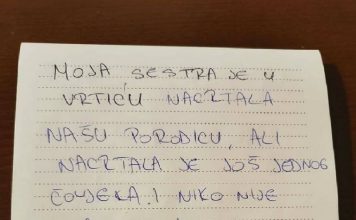 MOJA SESTRA JE U
VRTIĆU NACRTALA
NAŠU PORODICU, ALI
NACRTALA JE JOŠ JEDNOG
ČOVJEKA I NIKO NIJE